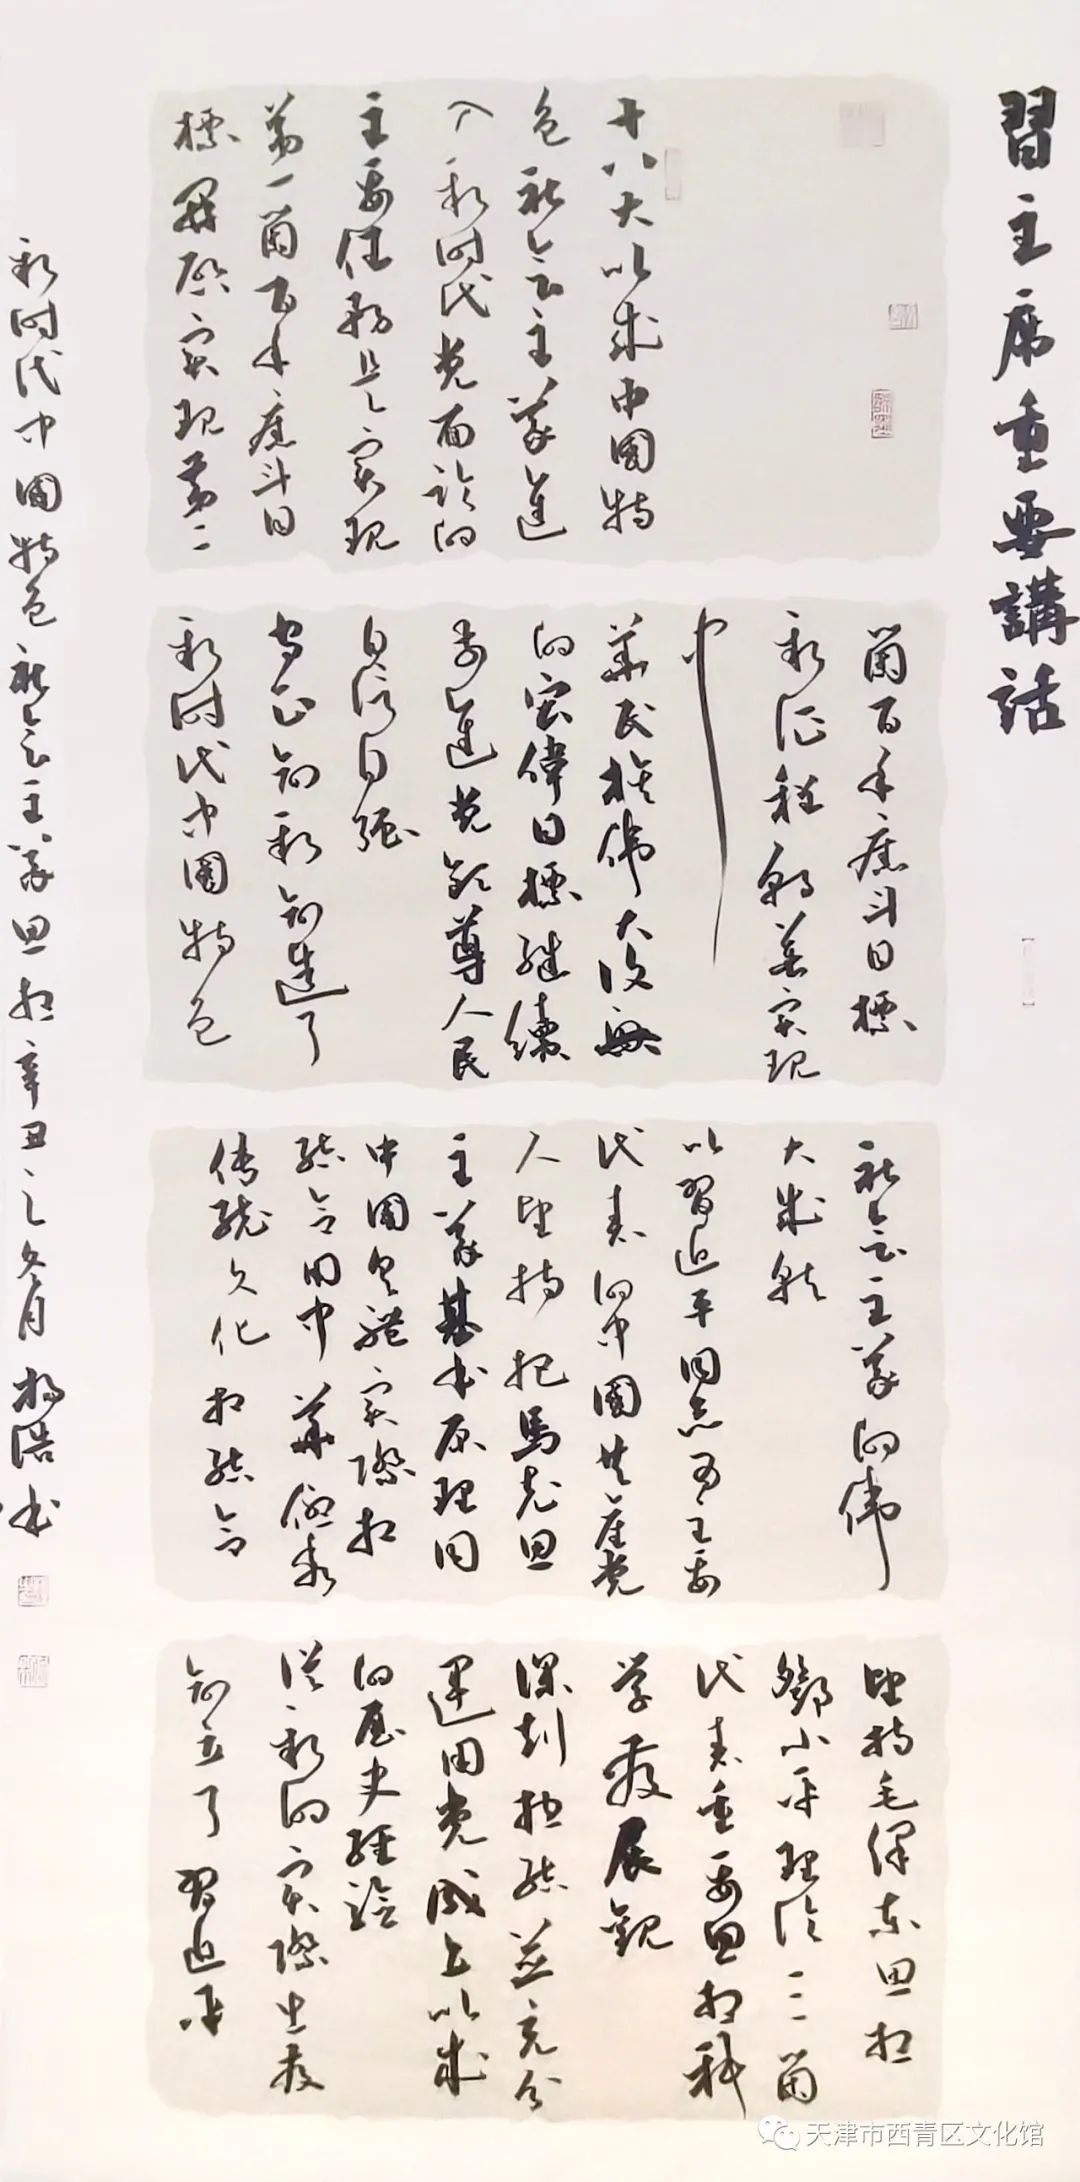 習主席重要講話
十八大以来中國特
色社会主義進
入新时代党面临的
主要任務是實现
第一個百年奮斗目
標開啟實现第二
個百年奮斗目標
新征程朝着實现
中
華民族伟大復興
的宏偉目標继續
前進党領導人民
自信自强
守正創新創造了
新时代中國特色
社会主義的伟
大成就
以習近平同志为主要
代表的中國共産党
人堅持把馬克思
主義基本原理同
中國具體實際相
結合同中華優秀
傳統文化相結合
堅持毛澤东思想
鄧小平理論三個
代表重要思想科
学發展觀
深刻總結並充分
運用党成立以来
的歷史經验
從新的實際出發
創立了習近平
新时代中國特色社会主義思想辛丑之冬月楊浩书
天津市西青区文化馆